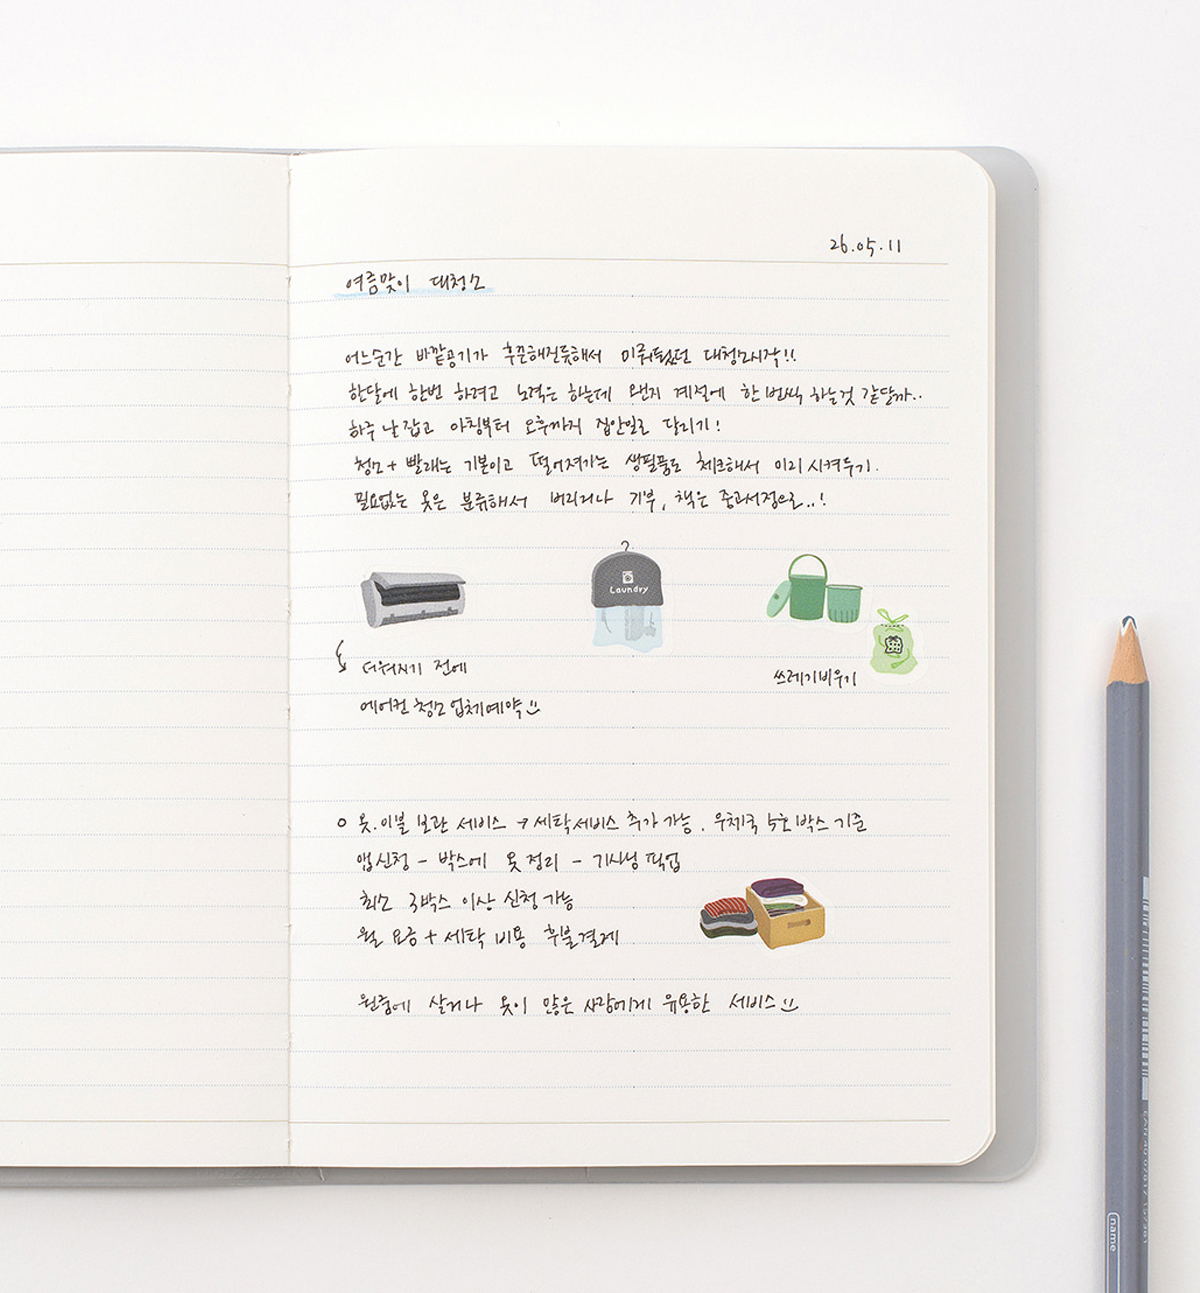 26.05.11
여름맞이 대청소
어느순간 바깥공기가 후끈해진듯해서 미뤄뒀던 대청소시작!!
한달에 한번 하려고 노력은 하는데 왠지 계절에 한번씩 하는것 같달까..
하루 날잡고 아침부터 오후까지 집안일로 달리기!
청소+ 빨래는 기본이고 떨어져가는 생필품도 체크해서 미리 시켜두기.
필요없는 옷은 분류해서 버리거나 기부, 책은 중고서점으로..!
Laundry
더워지기 전에
에어컨 청소업체예약
쓰레기비우기
옷.이불 보관 서비스 → 세탁서비스 추가 가능. 우체국 5호박스 기준
앱신청 - 박스에 옷정리 - 기사님 픽업
최소 3박스 이상 신청가능
월 요금 + 세탁 비용 후불결제
원룸에 살거나 옷이 많은 사람에게 유용한 서비스
name